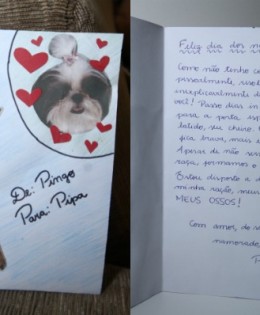 De: Pingo
Para: Pipa
Feliz dia dos
Como não tenho co
pessoalmente, resol
inexplicavelmente a
você! Passo dias in
para a porta, esp
latido, seu cheiro.
fica brava, mas e
Apesar de não ser
raça, formamos o
Estou disposto a d
minha ração, meus
MEUS OSSOS!
Com amor, do s
namorado,
P